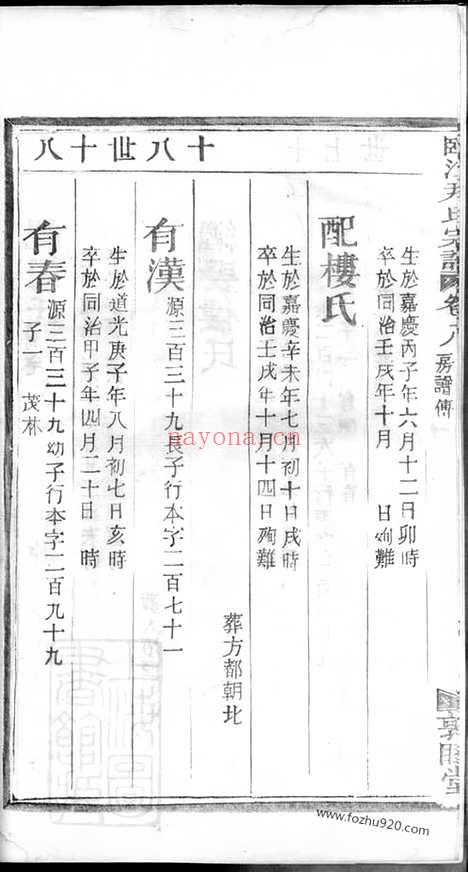 十八世十八
生於嘉慶丙子年六月十二日卯時
卒於同治壬戌年十月　日殉難
配樓氏
生於嘉慶辛未年七月初十日戌時
卒於同治壬戌年十月十四日殉難
葬方都朝北
有漢 源三百三十九長子行本字二百七十一
生於道光庚子年八月初七日亥時
卒於同治甲子年四月二十日　時
有春 源三百三十九幼子行本字二百九十九
子一　茂林
氏宗譜 卷八 房譜傳
敦睦堂
nayona.cn
www.fozhu920.com